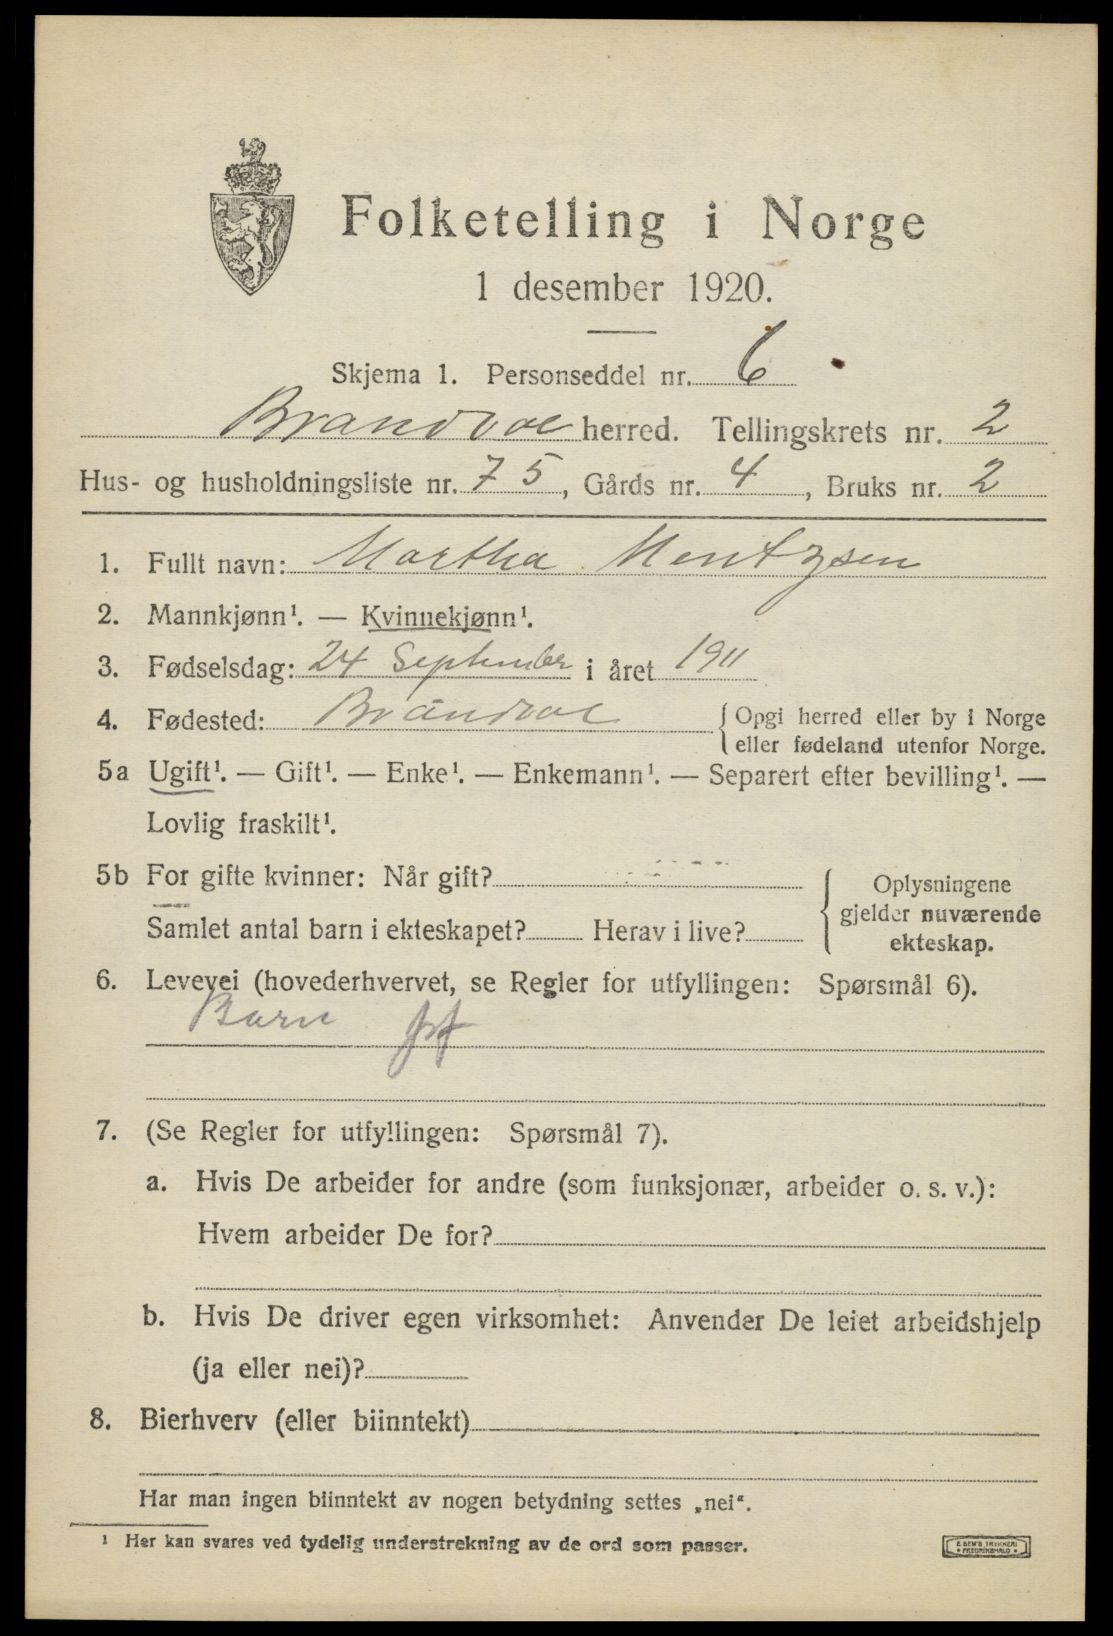 Folketelling i Norge
1 desember 1920.
Skjema 1. Personseddel nr. 6
Brandval herred. Tellingskrets nr. 2
Hus- og husholdningsliste nr. 75, Gårds nr. 4, Bruks nr. 2
1. Fullt navn: Martha Mentzsen
2. Mannkjønn¹. — Kvinnekjønn¹.
3. Fødselsdag: 24 September i året 1911
4. Fødested: Brandval {Opgi herred eller by i Norge
eller fødeland utenfor Norge.
5a Ugift¹. — Gift¹. — Enke¹. — Enkemann¹. — Separert efter bevilling¹. —
Lovlig fraskilt¹.
5b For gifte kvinner: Når gift?
Samlet antal barn i ekteskapet? Herav i live?
Oplysningene
gjelder nuværende
ekteskap.
6. Levevei (hovederhvervet, se Regler for utfyllingen: Spørsmål 6).
Barn
7. (Se Regler for utfyllingen: Spørsmål 7).
a. Hvis De arbeider for andre (som funksjonær, arbeider o. s. v.):
Hvem arbeider De for?
b. Hvis De driver egen virksomhet: Anvender De leiet arbeidshjelp
(ja eller nei)?
8. Bierhverv (eller biinntekt)
Har man ingen biinntekt av nogen betydning settes „nei“.
¹ Her kan svares ved tydelig understrekning av de ord som passer.
E SEM'S TRYKKERI
FREDRIKSHALD